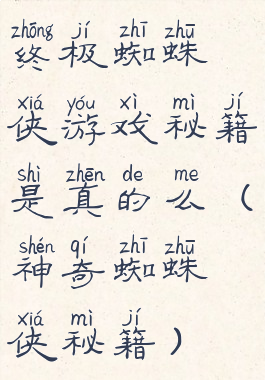 zhōng jí zhī zhū
终极蜘蛛
xiá yóu xì mì jí
侠游戏秘籍
shì zhēn de me
是真的么（
shén qí zhī zhū
神奇蜘蛛
xiá mì jí
侠秘籍）